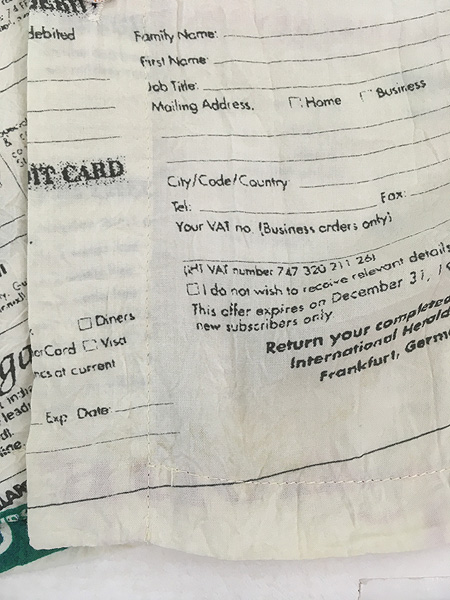 debited
IT CARD
Diners
Card Visa
at current
Exp. Date:
Family Name:
First Name:
Job Title:
Mailing Address. Home Business
City/Code/Country
Tel: Fax:
Your VAT no. (Business orders only)
VAT number 747 320 211 26)
I do not wish to receive relevant details
This offer expires on December 31, 
new subscribers only
Return your completed
International Herald
Frankfurt, Germ